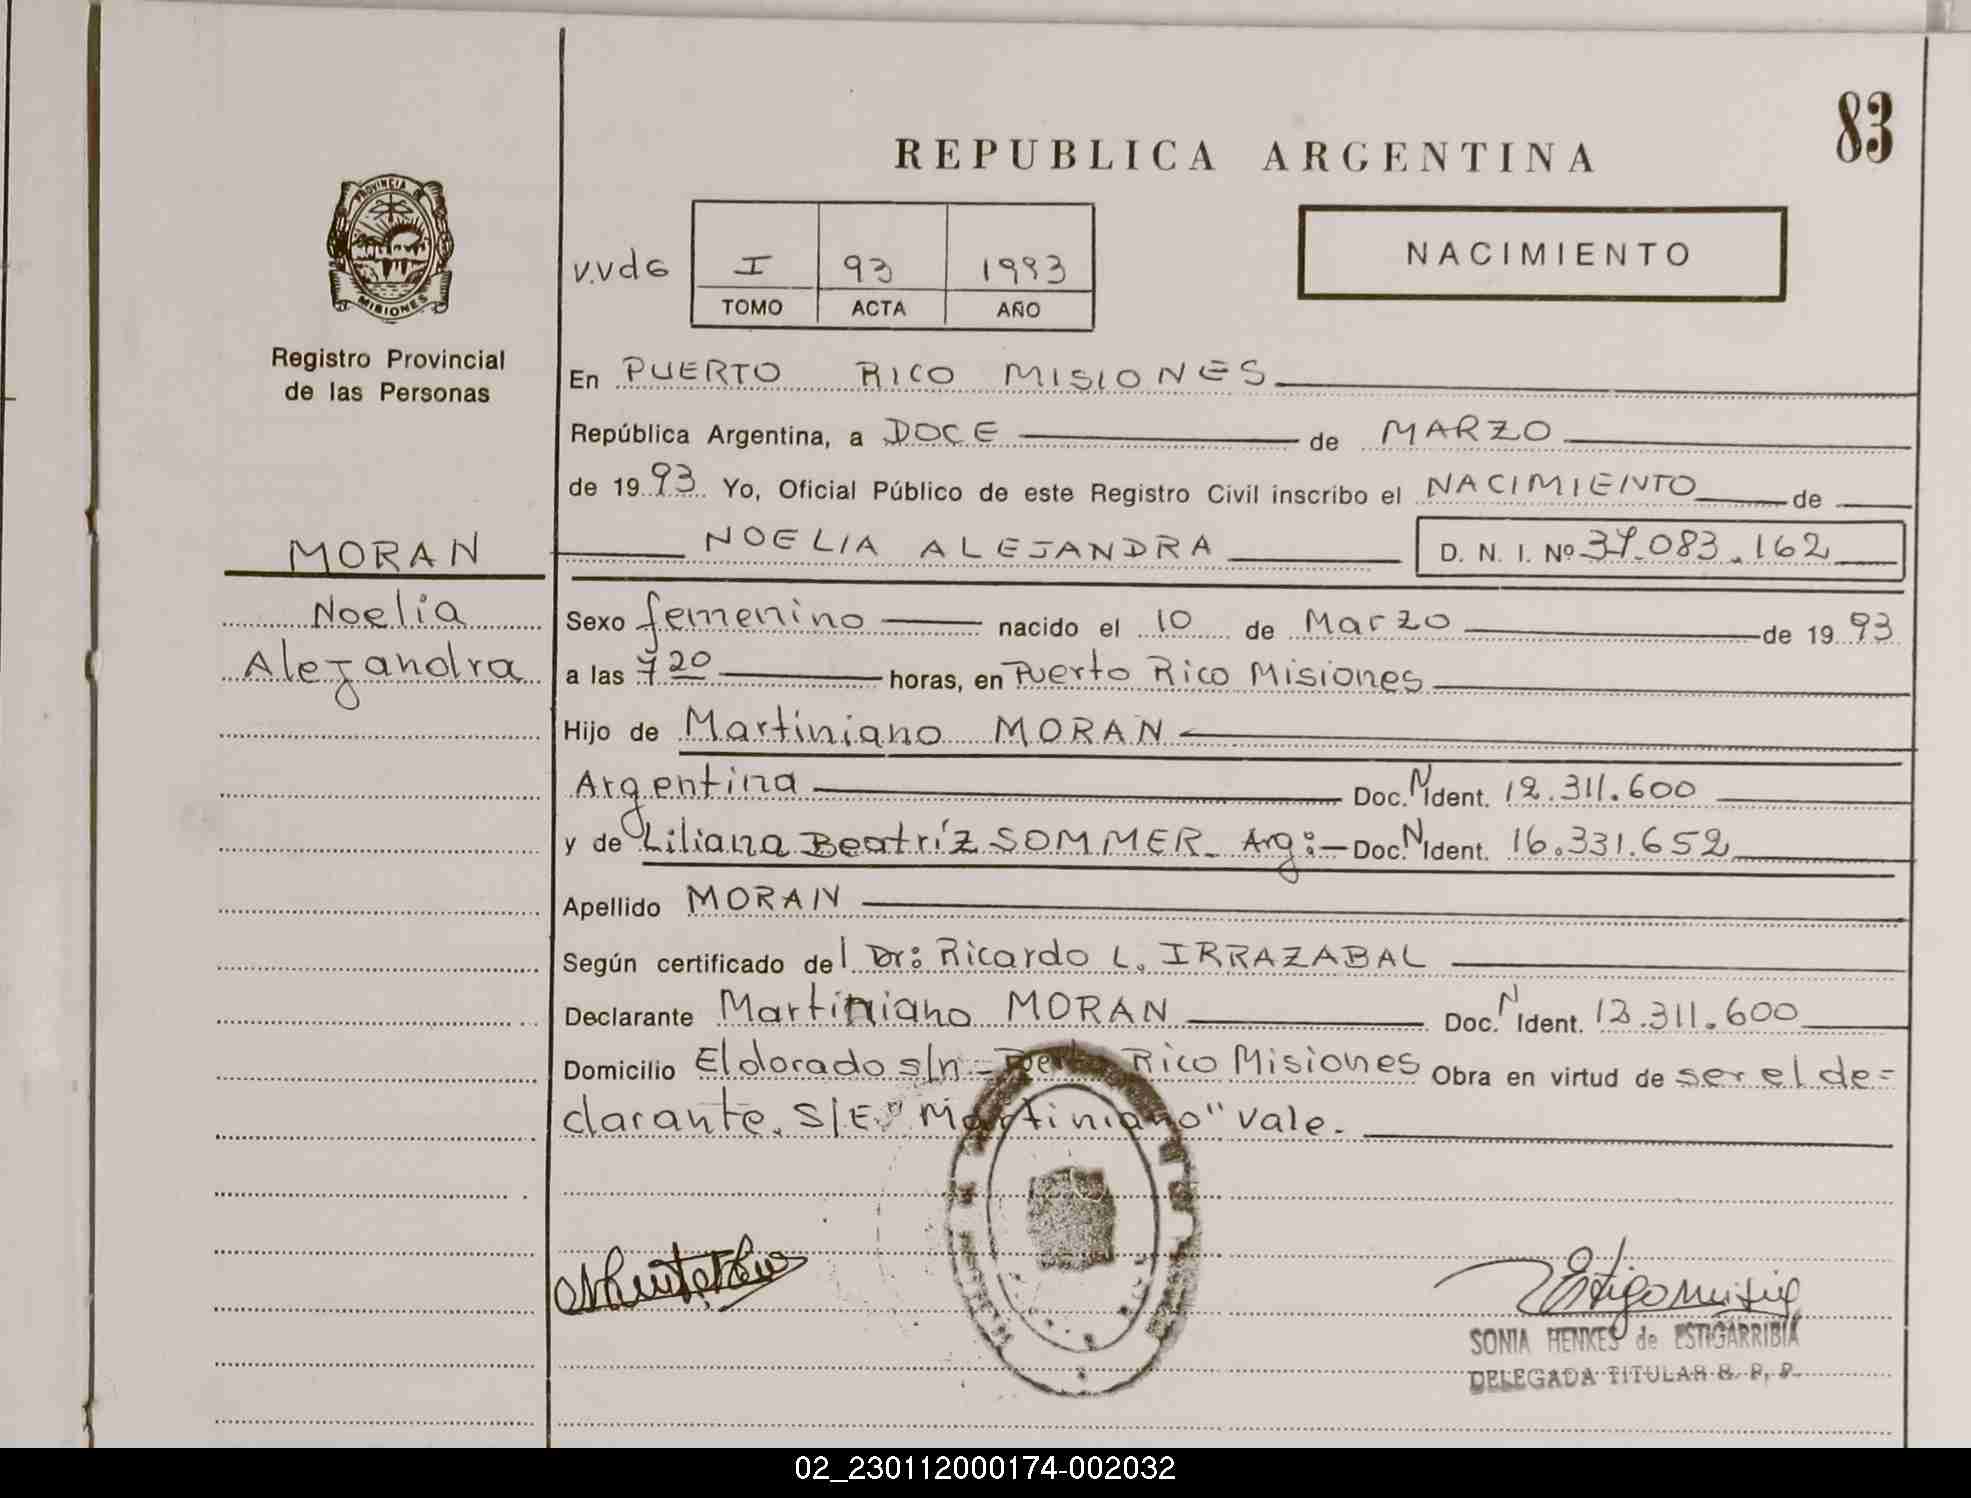 83
REPUBLICA ARGENTINA
PROVINCIA DE
MISIONES
Registro Provincial
de las Personas
NACIMIENTO
V.VdG I 93 1993
TOMO ACTA AÑO
En PUERTO RICO MISIONES
República Argentina, a DOCE de MARZO
de 1993 Yo, Oficial Público de este Registro Civil inscribo el NACIMIENTO de
NOELIA ALEJANDRA D. N. I. Nº 37.083.162
MORAN
Noelia
Alejandra
Sexo femenino nacido el 10 de Marzo de 1993
a las 7 20 horas, en Puerto Rico Misiones
Hijo de Martiniano MORAN
Argentina Doc. N Ident. 12.311.600
y de Liliana Beatríz SOMMER_ Arg:- Doc. N Ident. 16.331.652
Apellido MORAN
Según certificado del Dr: Ricardo L. IRRAZABAL
Declarante Martiniano MORAN Doc. N Ident. 12.311.600
Domicilio Eldorado s/n - Puerto Rico Misiones Obra en virtud de ser el de=
clarante. S/E "Martiniano" Vale.
SONIA HENKES de ESTIGARRIBIA
DELEGADA TITULAR R. P. P.
02_230112000174-002032